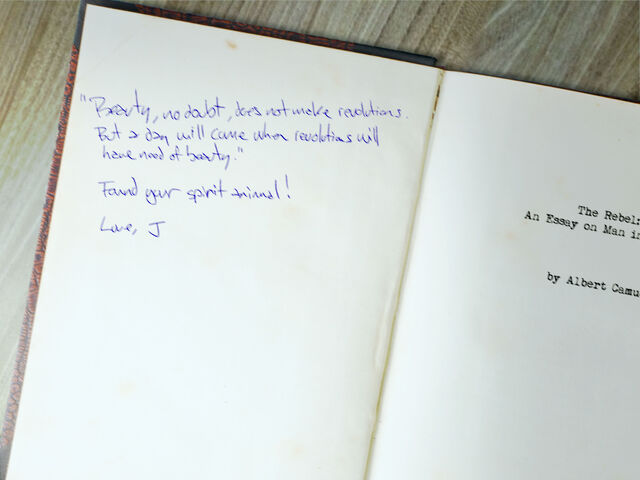 "Beauty, no doubt, does not make revolutions.
But a day will come when revolutions will
have need of beauty."
Found your spirit animal!
Love, J
The Rebel:
An Essay on Man in
by Albert Camu